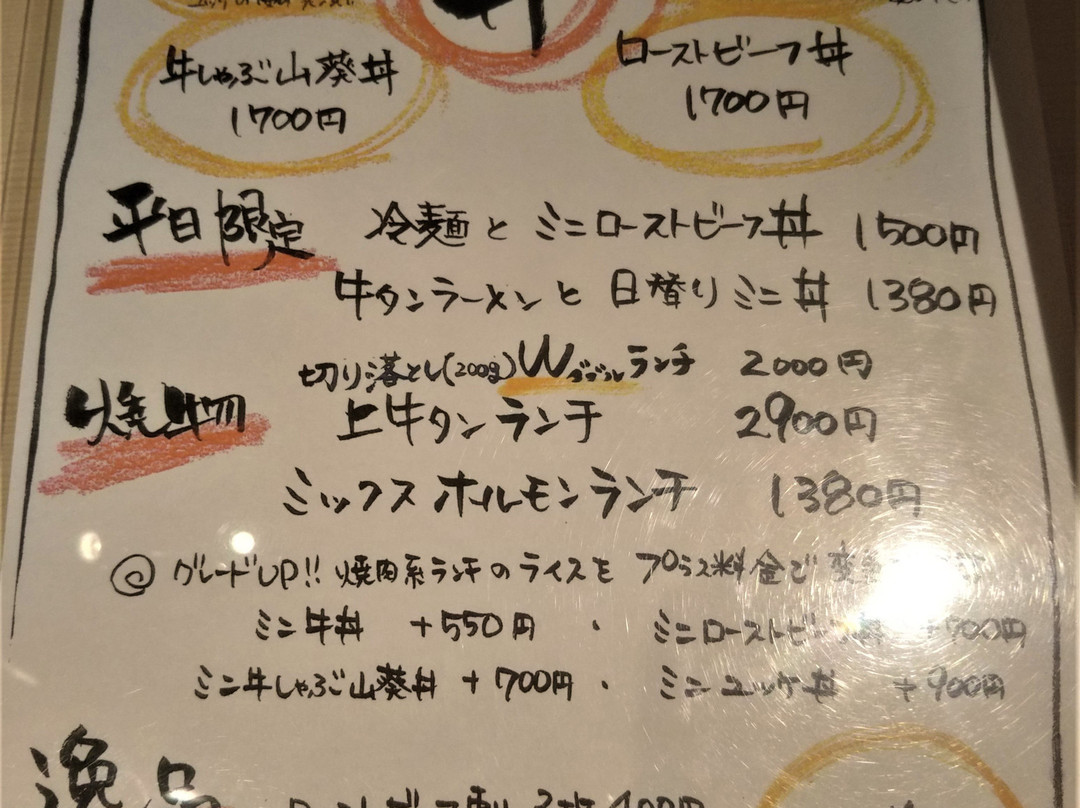 丼
牛しゃぶ山葵丼
1700円
ローストビーフ丼
1700円
平日限定 冷麺と ミニローストビーフ丼 1500円
牛タンラーメンと 日替りミニ丼 1380円
焼物
切り落とし(200g)Wダブルランチ 2000円
上牛タンランチ 2900円
ミックスホルモンランチ 1380円
◎グレードUP!! 焼肉系ランチのライスを プラス料金で
ミニ牛丼 +550円 ・ ミニローストビーフ丼 +700円
ミニ牛しゃぶ山葵丼 +700円 ・ ミニユッケ丼 +900円
逸品